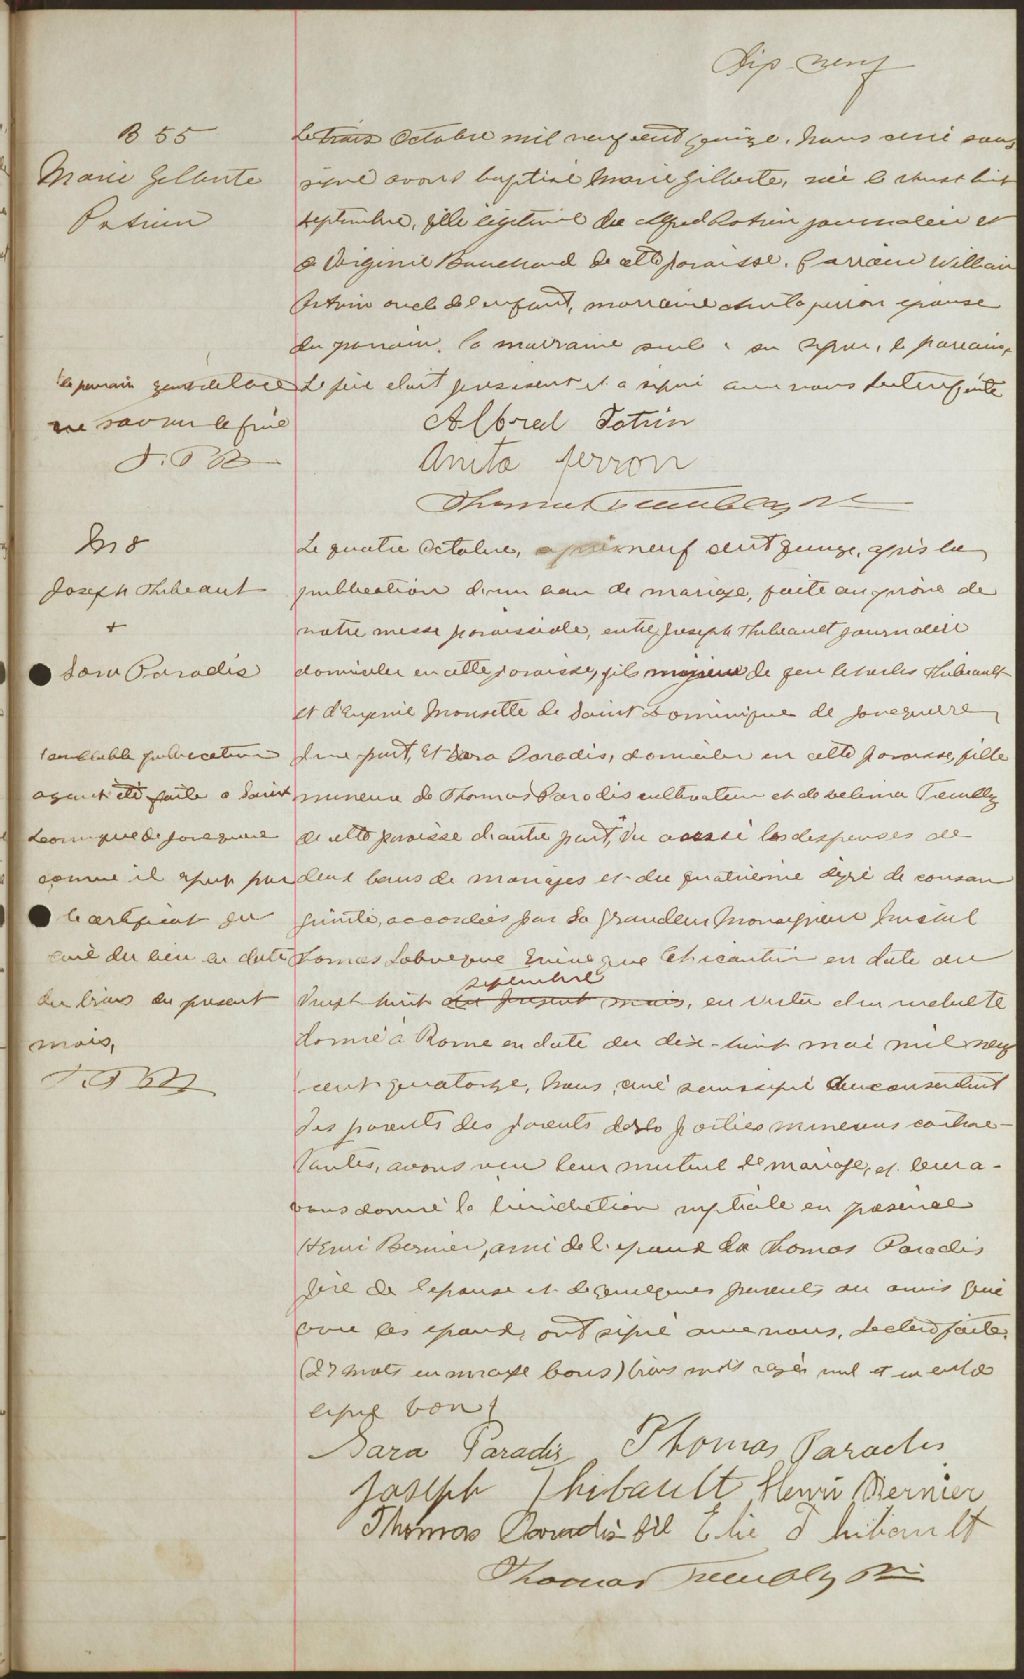 Dix neuf
B 55
Marie Gilberte
Potvin
Le trois Octobre mil neuf cent quinze. Nous curé sous
signé avons baptisé Marie Gilberte, née le vingt huit
septembre, fille légitime de Alfred Potvin journalier et
de Virginie Bouchard de cette paroisse. Parrain William
Potvin oncle de l'enfant, marraine Anita Perron épouse
du parrain. La marraine seule a su signer, le parrain
Le père étant présent et a signé avec nous Lecture faite
le parrain ayant déclaré
ne savoir le faire
T. T. Ptre
Alfred Potvin
Anita Perron
Thomas Tremblay Ptre
M 8
Joseph Thibeault
+
Sara Paradis
Le quatre Octobre, neuf cent quinze, après la
publication d'un ban de mariage, faite au prône de
notre messe paroissiale, entre Joseph Thibeault journalier
domicilié en cette paroisse, fils majeur de feu Charles Thibeault
et d'Eugénie Moussette de Saint Dominique de Jonquière
d'une part, Et Sara Paradis, domiciliée en cette paroisse, fille
mineure de Thomas Paradis cultivateur et de Delima Tremblay
de cette paroisse d'autre part, Vu aussi les dispenses de
deux bans de mariages et du quatrième degré de consan
guinité, accordées par Sa Grandeur Monseigneur Michel
Thomas Labrecque Evêque de Chicoutimi en date du
septembre
vingt huit du présent mois, en vertu d'un indult
donné à Rome en date du dix-huit mai mil neuf
cent quatorze, Nous, curé soussigné du consentement
des parents des parents de la parties mineures contrac-
tantes, avons reçu leur mutuel de mariage, et leur a-
vons donné la bénédiction nuptiale en présence
Henri Bernier, ami de l'époux de Thomas Paradis
père de l'épouse et de quelques parents ou amis qui
avec les époux, ont signé avec nous. Lecture faite.
(27 mots en marge bons) trois mots rayés nul et un entre
ligne bon /
semblable publication
ayant été faite à Saint
Dominique de Jonquière
comme il appert par
le certificat du
curé du lieu en date
du trois du présent
mois,
T. T. Ptre
Sara Paradis Thomas Paradis
Joseph Thibault Henri Bernier
Thomas Paradis fil Elie Thibault
Thomas Tremblay Ptre